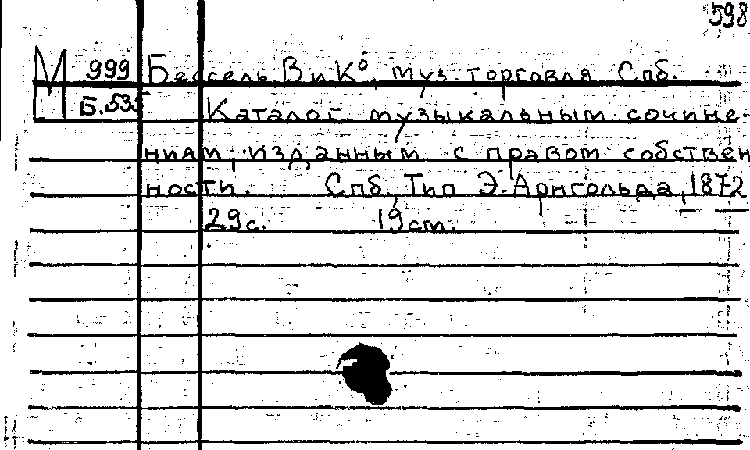 598
М 999 Бессель В. и К°, муз. торговля Спб.
Б.535 Каталог музыкальным сочине-
ниям, изданным с правом собствен
ности. Спб, Тип Э. Арнгольда, 1872
29с. 19см.